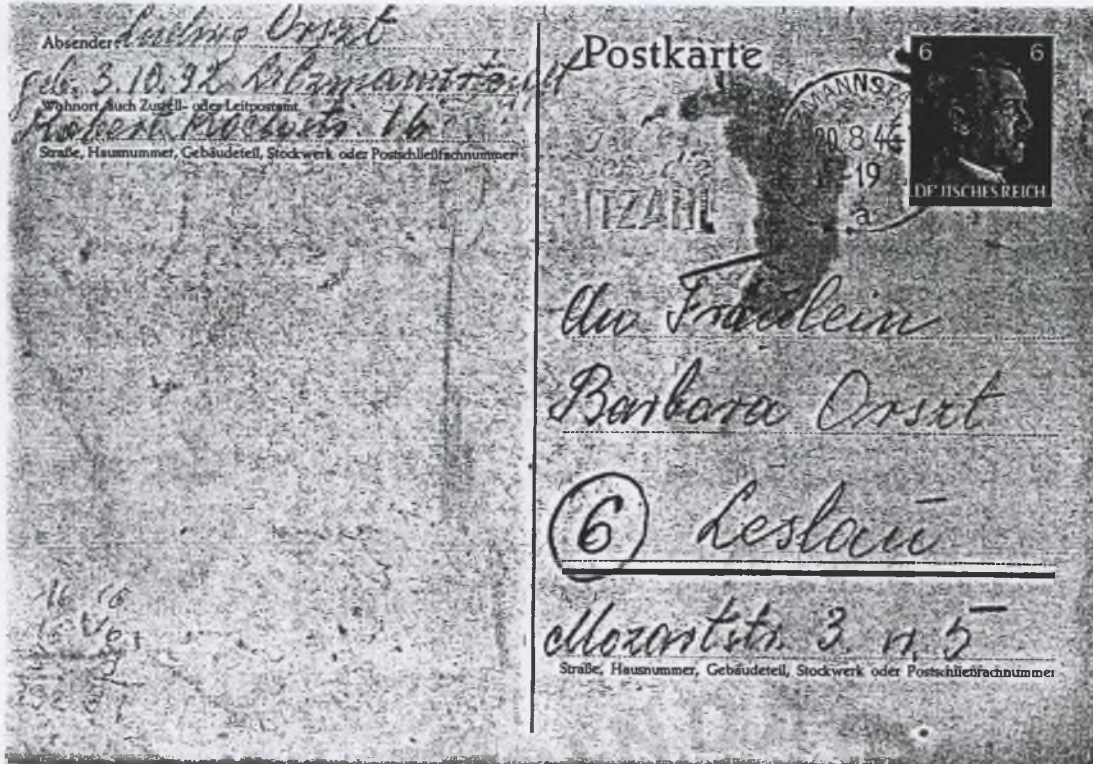 Absender: Ludwig Orszt
geb. 3.10.92 Litzmannstadt
Wohnort, auch Zustell- oder Leitpostamt
Robert Kochstr. 16
Straße, Hausnummer, Gebäudeteil, Stockwerk oder Postschließfachnummer
16 16
Postkarte
6 6
MANNSTA
20.8.44
-19
a
DEUTSCHES REICH
An Fräulein
Barbara Orszt
6 Leslau
Mozartstr. 3 n. 5
Straße, Hausnummer, Gebäudeteil, Stockwerk oder Postschließfachnummer